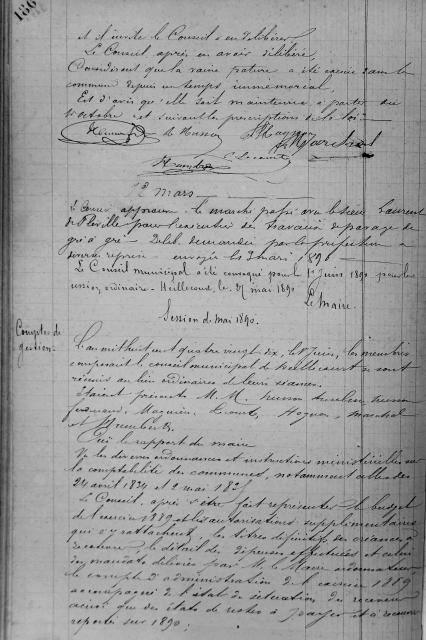 186
et invite le Conseil à en délibérer.
Le Conseil, après en avoir délibéré,
Considérant que la vaine pâture a été exercée dans la
commune depuis un temps immémorial,
Est d'avis qu'elle soit maintenue à partir du
octobre et suivant les prescriptions de la loi.
A. Husson
Marchal
Humbert
C. Lecomte
12 mars
approuve le marché passé avec le sieur Laurent
de pour l'exécution des travaux de pavage de
gré à gré - Délib. demandée par la préfecture à
diverses reprises - envoyée le 3 mai 1890
Le Conseil municipal a été convoqué pour le 1er Juin 1890 pour les
session ordinaire - Heillecourt, le 27 mai 1890
Le Maire.
Session de Mai 1890.
Comptes de
gestion -
L'an mil huit cent quatre vingt dix, le Juin, les membres
composant le conseil municipal de Heillecourt se sont
réunis au lieu ordinaire de leurs séances.
étaient présents M. M. Husson Husson
Ferdinand, Lecomte, Marchal
et Humbert.
Ouï le rapport du maire
Vu les diverses ordonnances et instructions ministérielles sur
la comptabilité des communes, notamment celles des
24 avril 1834 et 2 mai 1835
Le Conseil, après s'être fait représenter le budget
de l'exercice 1889 et les autorisations supplémentaires
qui s'y rattachent, les titres définitifs des créances à
recouvrer, le détail des dépenses effectuées et celui
des mandats délivrés par M. le Maire ordonnateur,
le compte d'administration de l'exercice 1889
accompagné de l'état de situation du receveur
ainsi que des états de restes à payer et à recouvrer
reportés sur 1890;